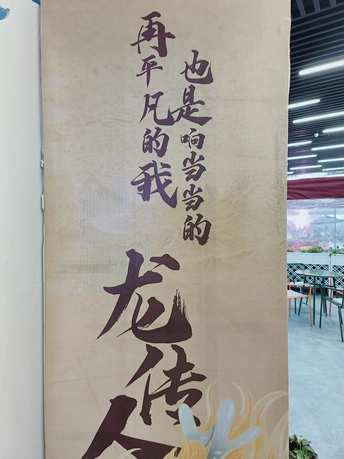 再平凡的我
也是响当当的
龙传